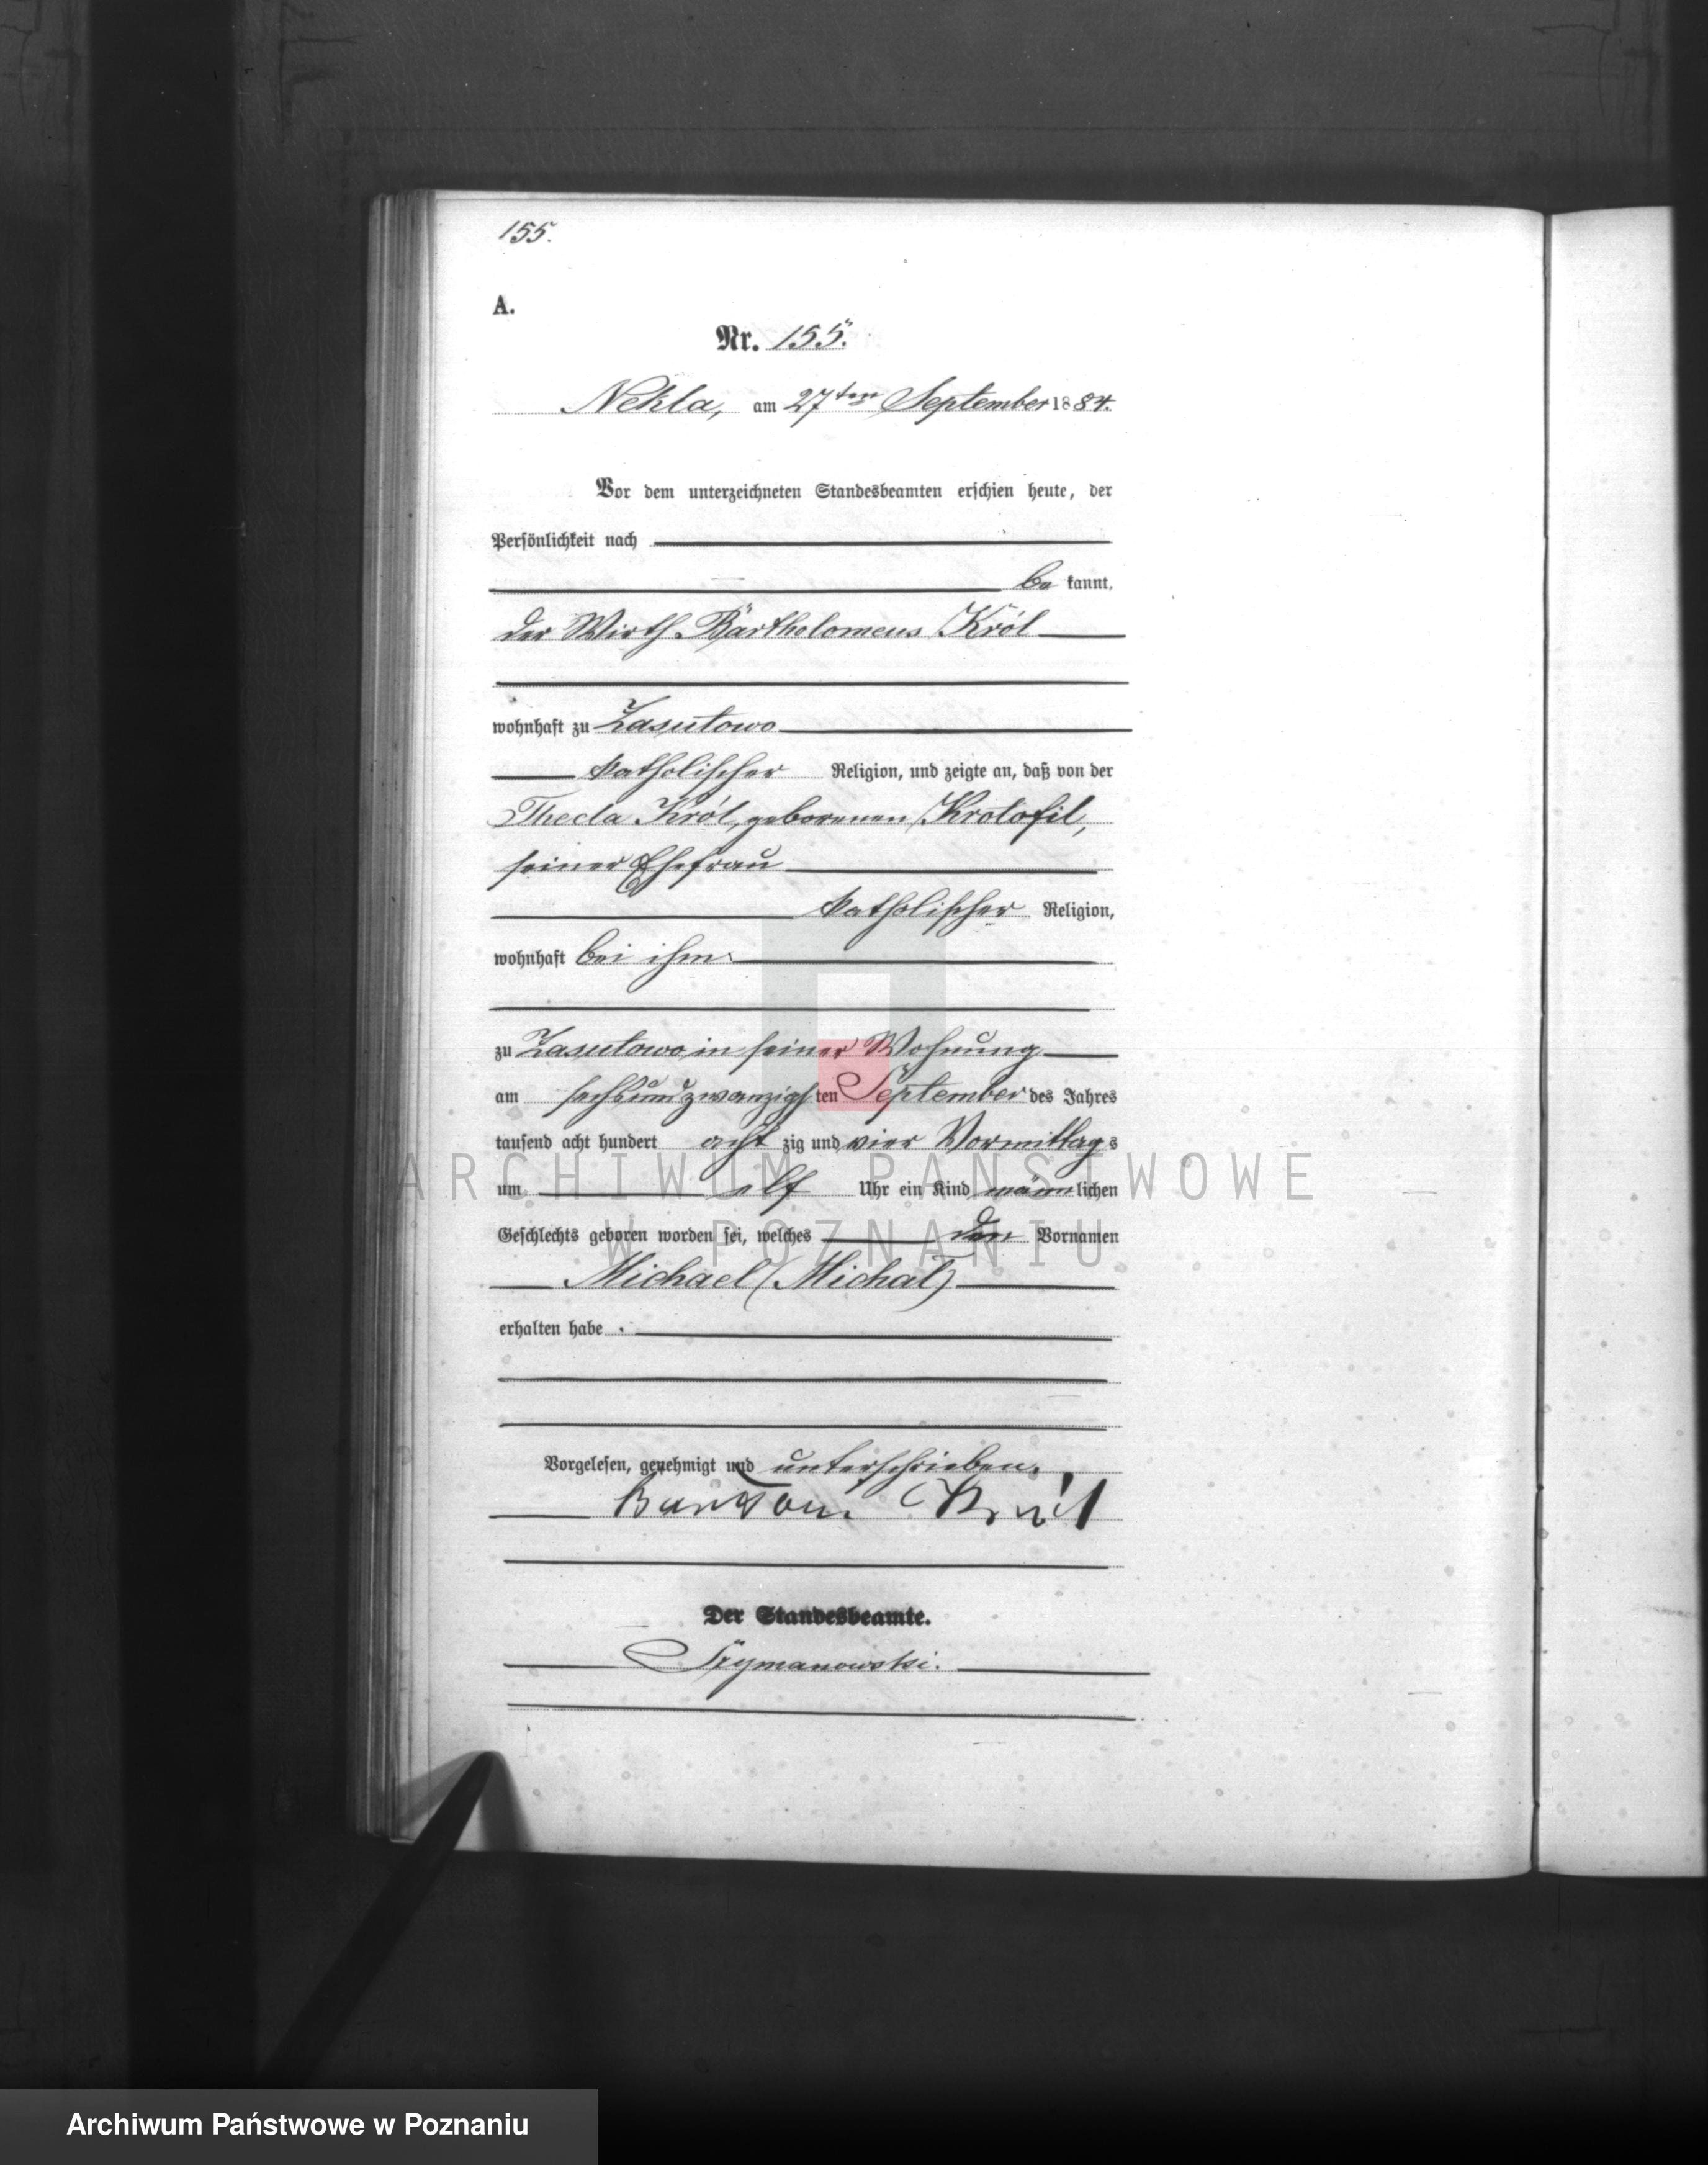 155.
A.
Nr. 155.
Nekla, am 27ten September 1884.
Vor dem unterzeichneten Standesbeamten erschien heute, der
Persönlichkeit nach
be kannt,
der Wirth Bartholomeus Król
wohnhaft zu Zasutowo
katholischer Religion, und zeigte an, daß von der
Thecla Król, geborenen Krotofil,
seiner Ehefrau
katholischer Religion,
wohnhaft bei ihm
zu Zasutowo in seiner Wohnung
am sechsundzwanzigsten September des Jahres
tausend acht hundert acht zig und vier Vormittags
um elf Uhr ein Kind männlichen
Geschlechts geboren worden sei, welches den Vornamen
Michael (Michał)
erhalten habe.
Vorgelesen, genehmigt und unterschrieben.
Król
Der Standesbeamte.
Szymanowski.
ARCHIWUM PAŃSTWOWE
W POZNANIU
Archiwum Państwowe w Poznaniu